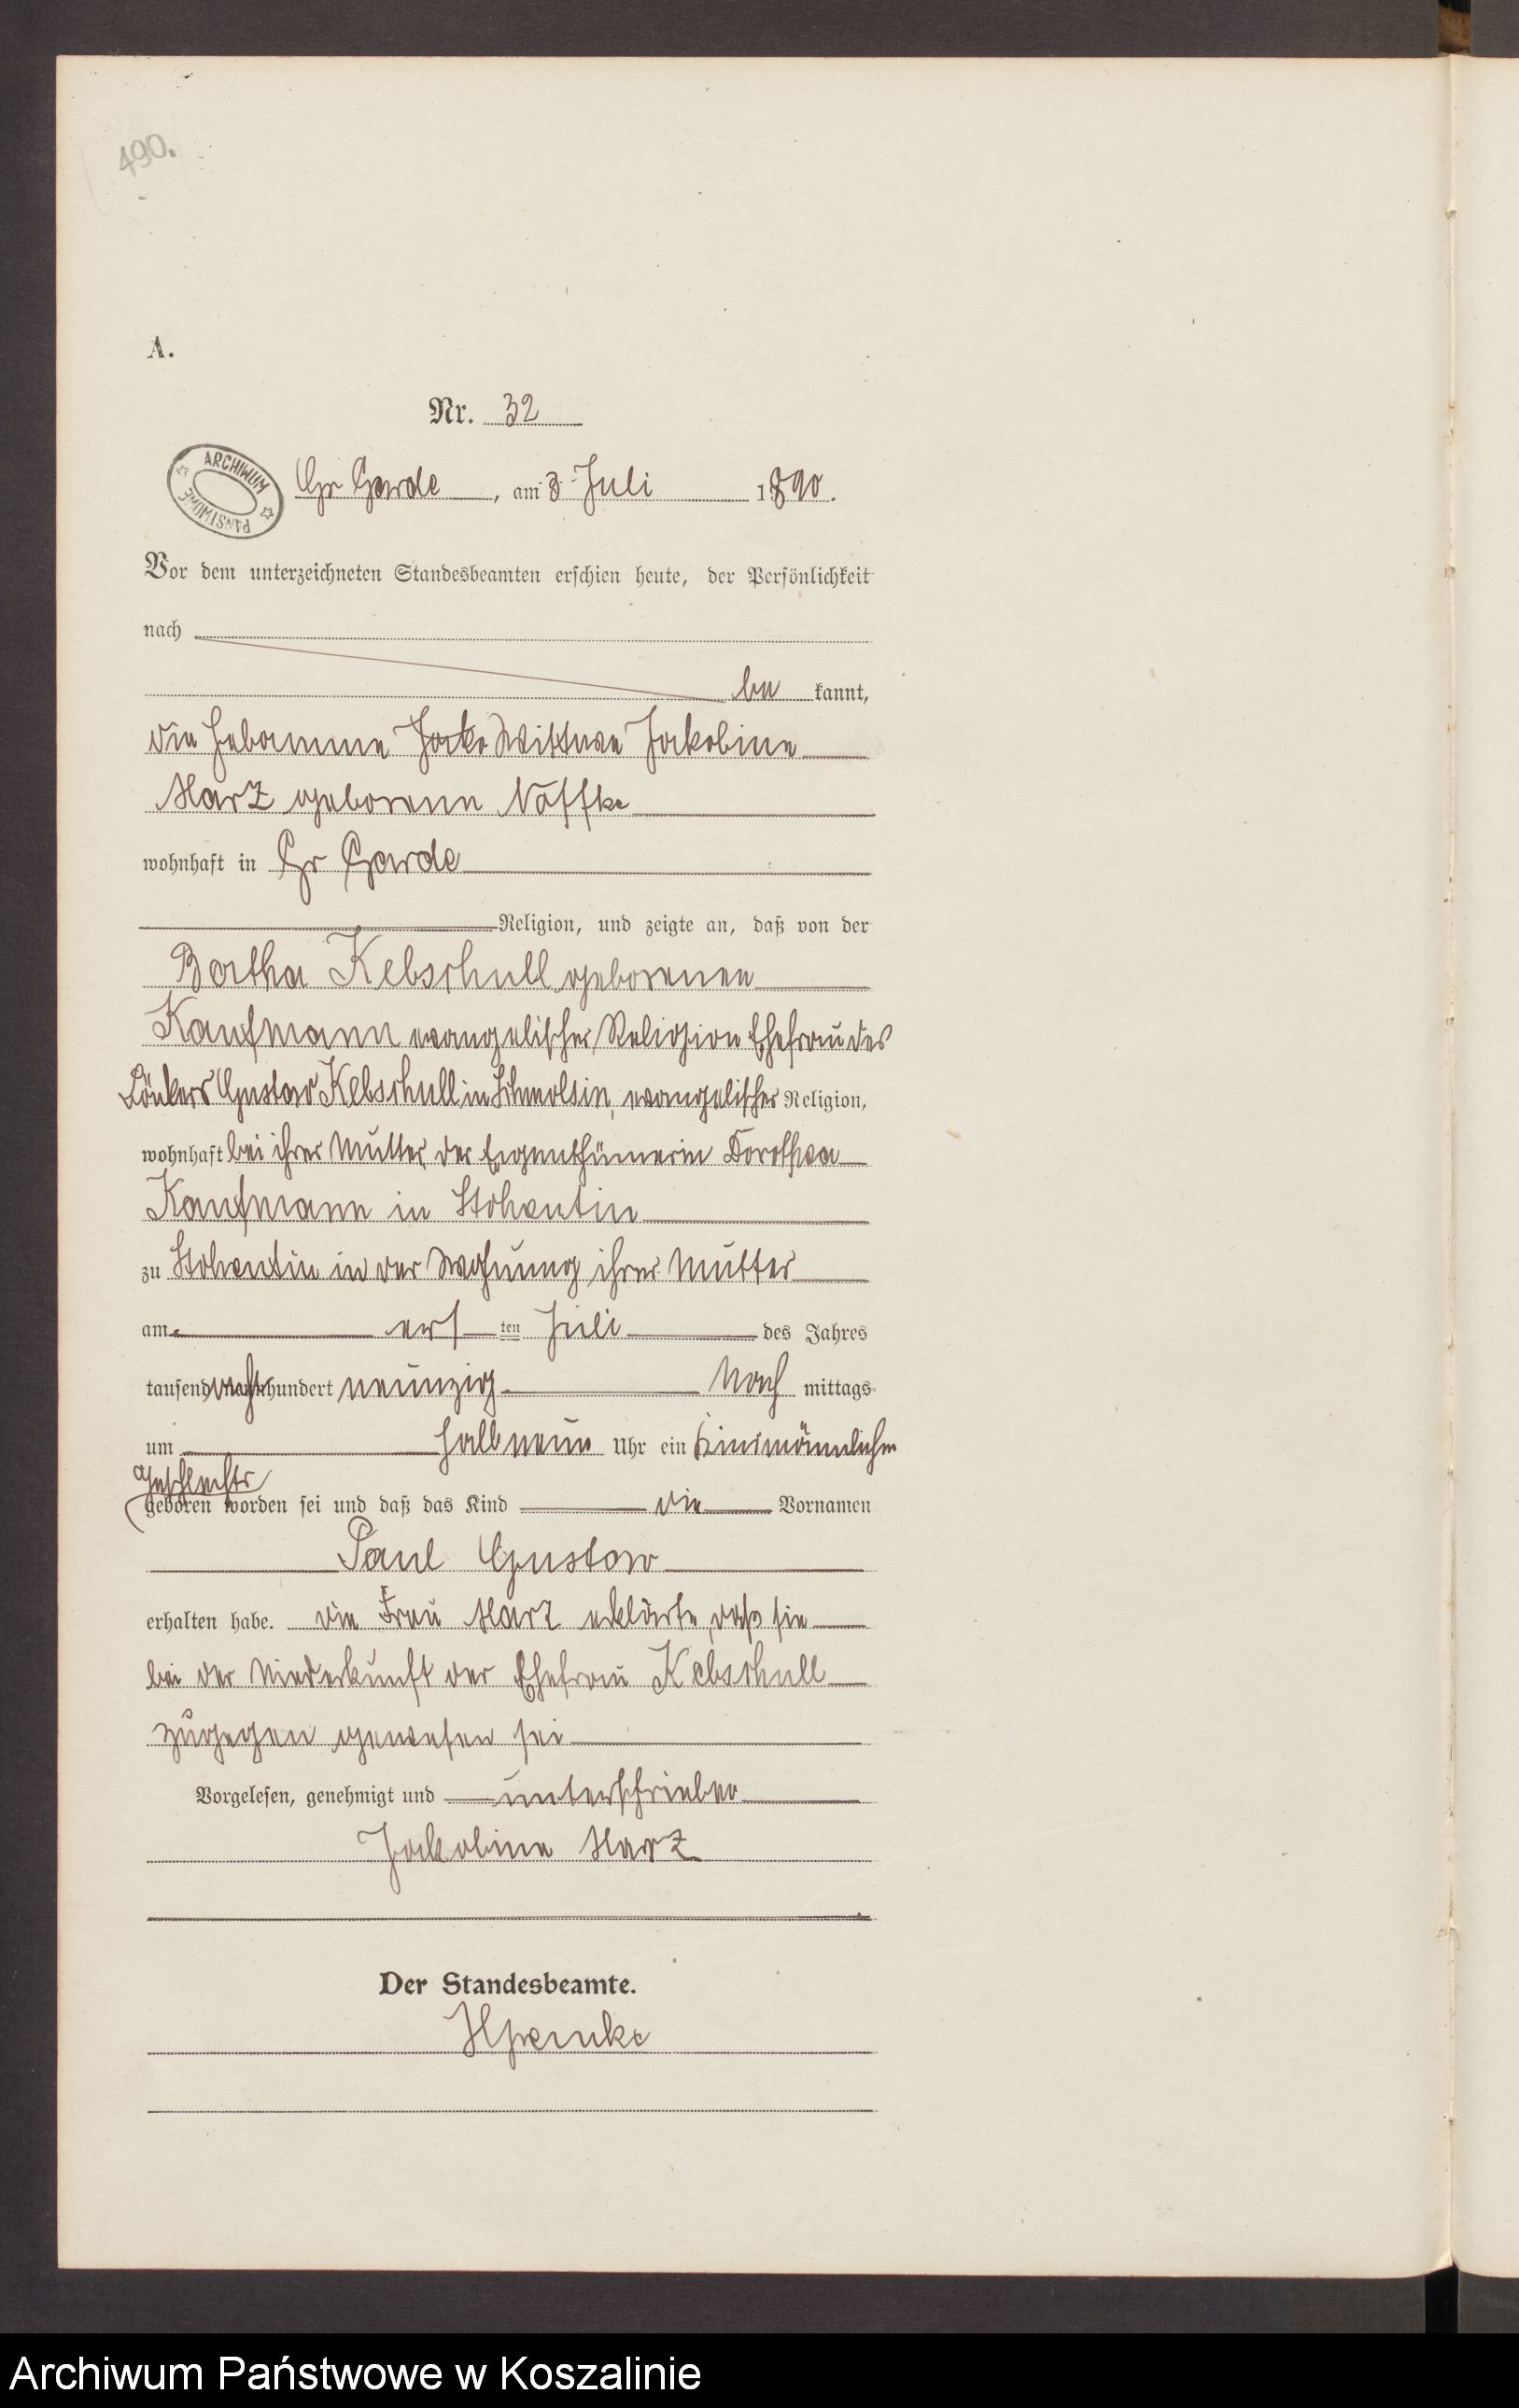 490.
A.
Nr. 32
ARCHIWUM
PAŃSTWOWE
Gr Garde, am 3 Juli 1890.
Vor dem unterzeichneten Standesbeamten erschien heute, der Persönlichkeit
nach
be kannt,
die Hebamme Jako Wittwe Jakobine
Harz geborene Noffke
wohnhaft in Gr Garde
Religion, und zeigte an, daß von der
Bertha Kebschull geborenen
Kaufmann evangelischer Religion Ehefrau des
Gustav Kebschull in Schmolsin, evangelischer Religion,
wohnhaft bei ihrer Mutter der Eigenthümerin Dorothea
Kaufmann in Stohentin
zu Stohentin in der Wohnung ihrer Mutter
am ers ten Juli des Jahres
tausend acht hundert neunzig Nach mittags
um halb neun Uhr ein Kind männlichen
Geschlechts
geboren worden sei und daß das Kind die Vornamen
Paul Gustav
erhalten habe. die Frau Harz erklärte, daß sie
bei der Niederkunft der Ehefrau Kebschull
zugegen gewesen sei
Vorgelesen, genehmigt und unterschrieben
Jakobine Harz
Der Standesbeamte.
Archiwum Państwowe w Koszalinie